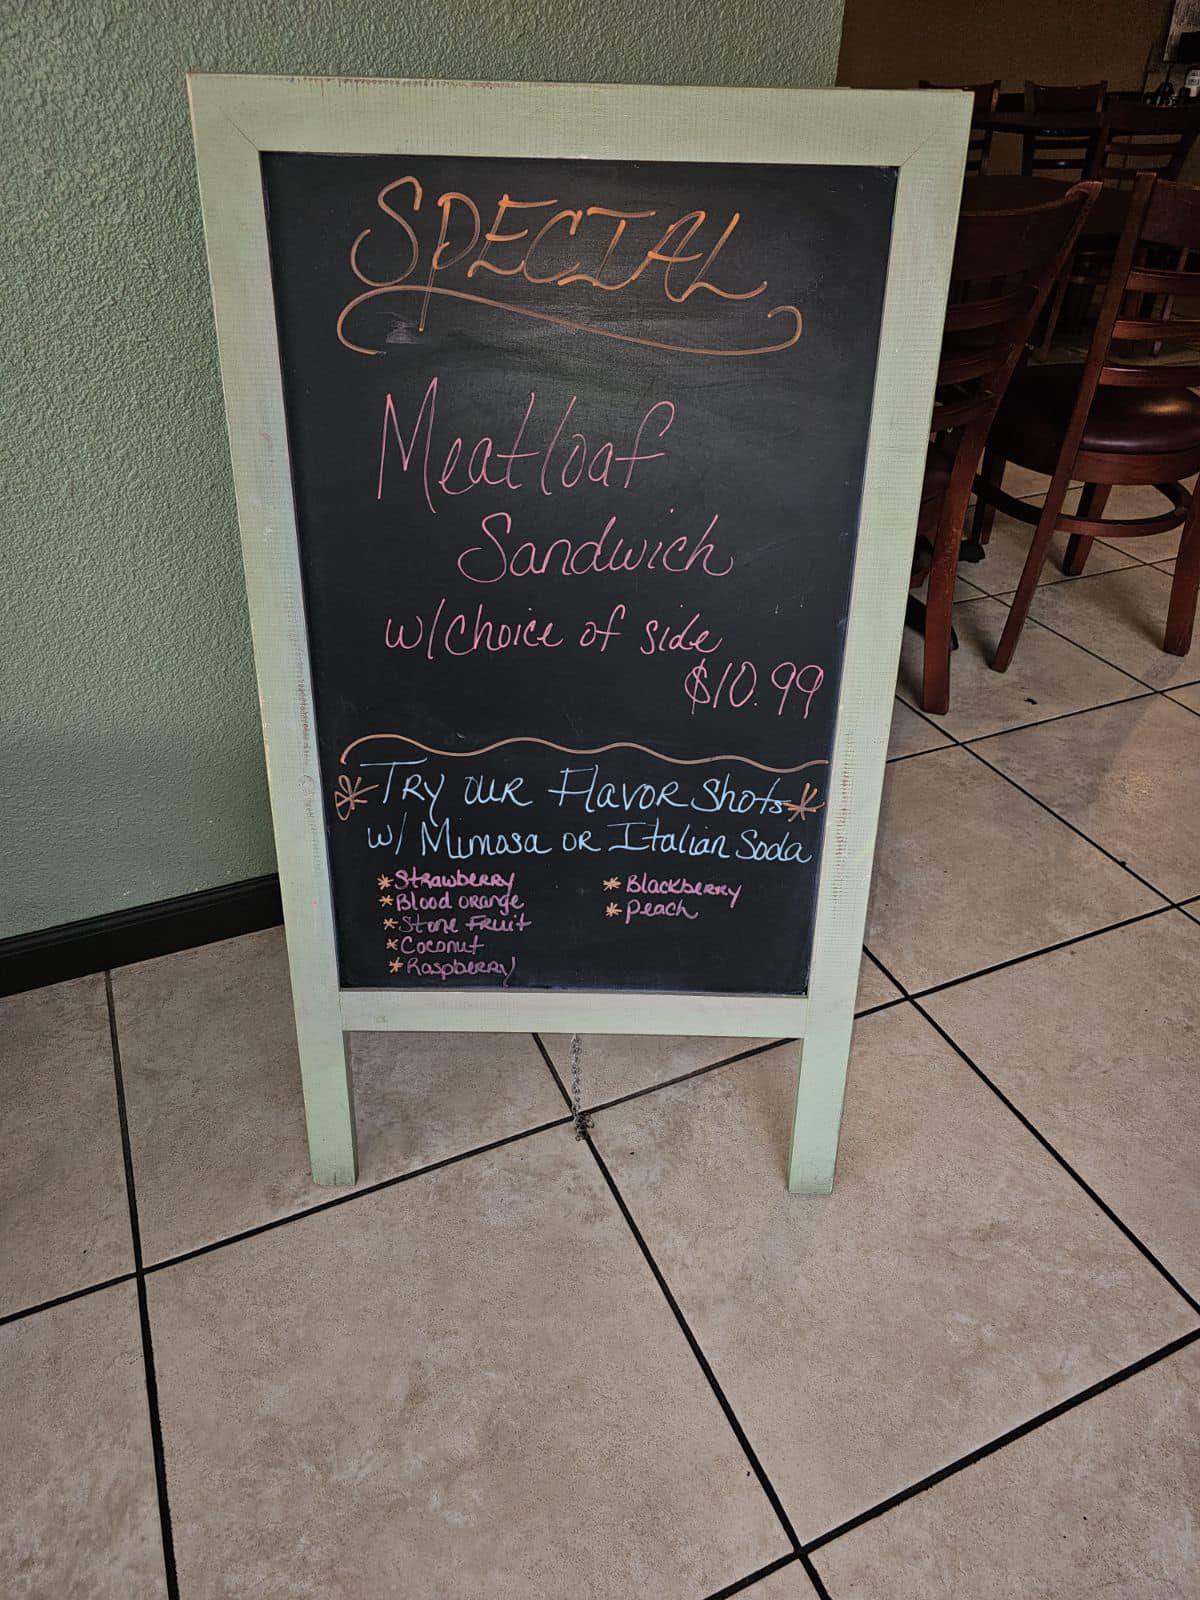 SPECIAL
Meatloaf
Sandwich
w/choice of side
$10.99
*Try our Flavor Shots*
w/ Mimosa or Italian Soda
*Strawberry
*Blood orange
*Stone Fruit
*Coconut
*Raspberry
*Blackberry
*Peach